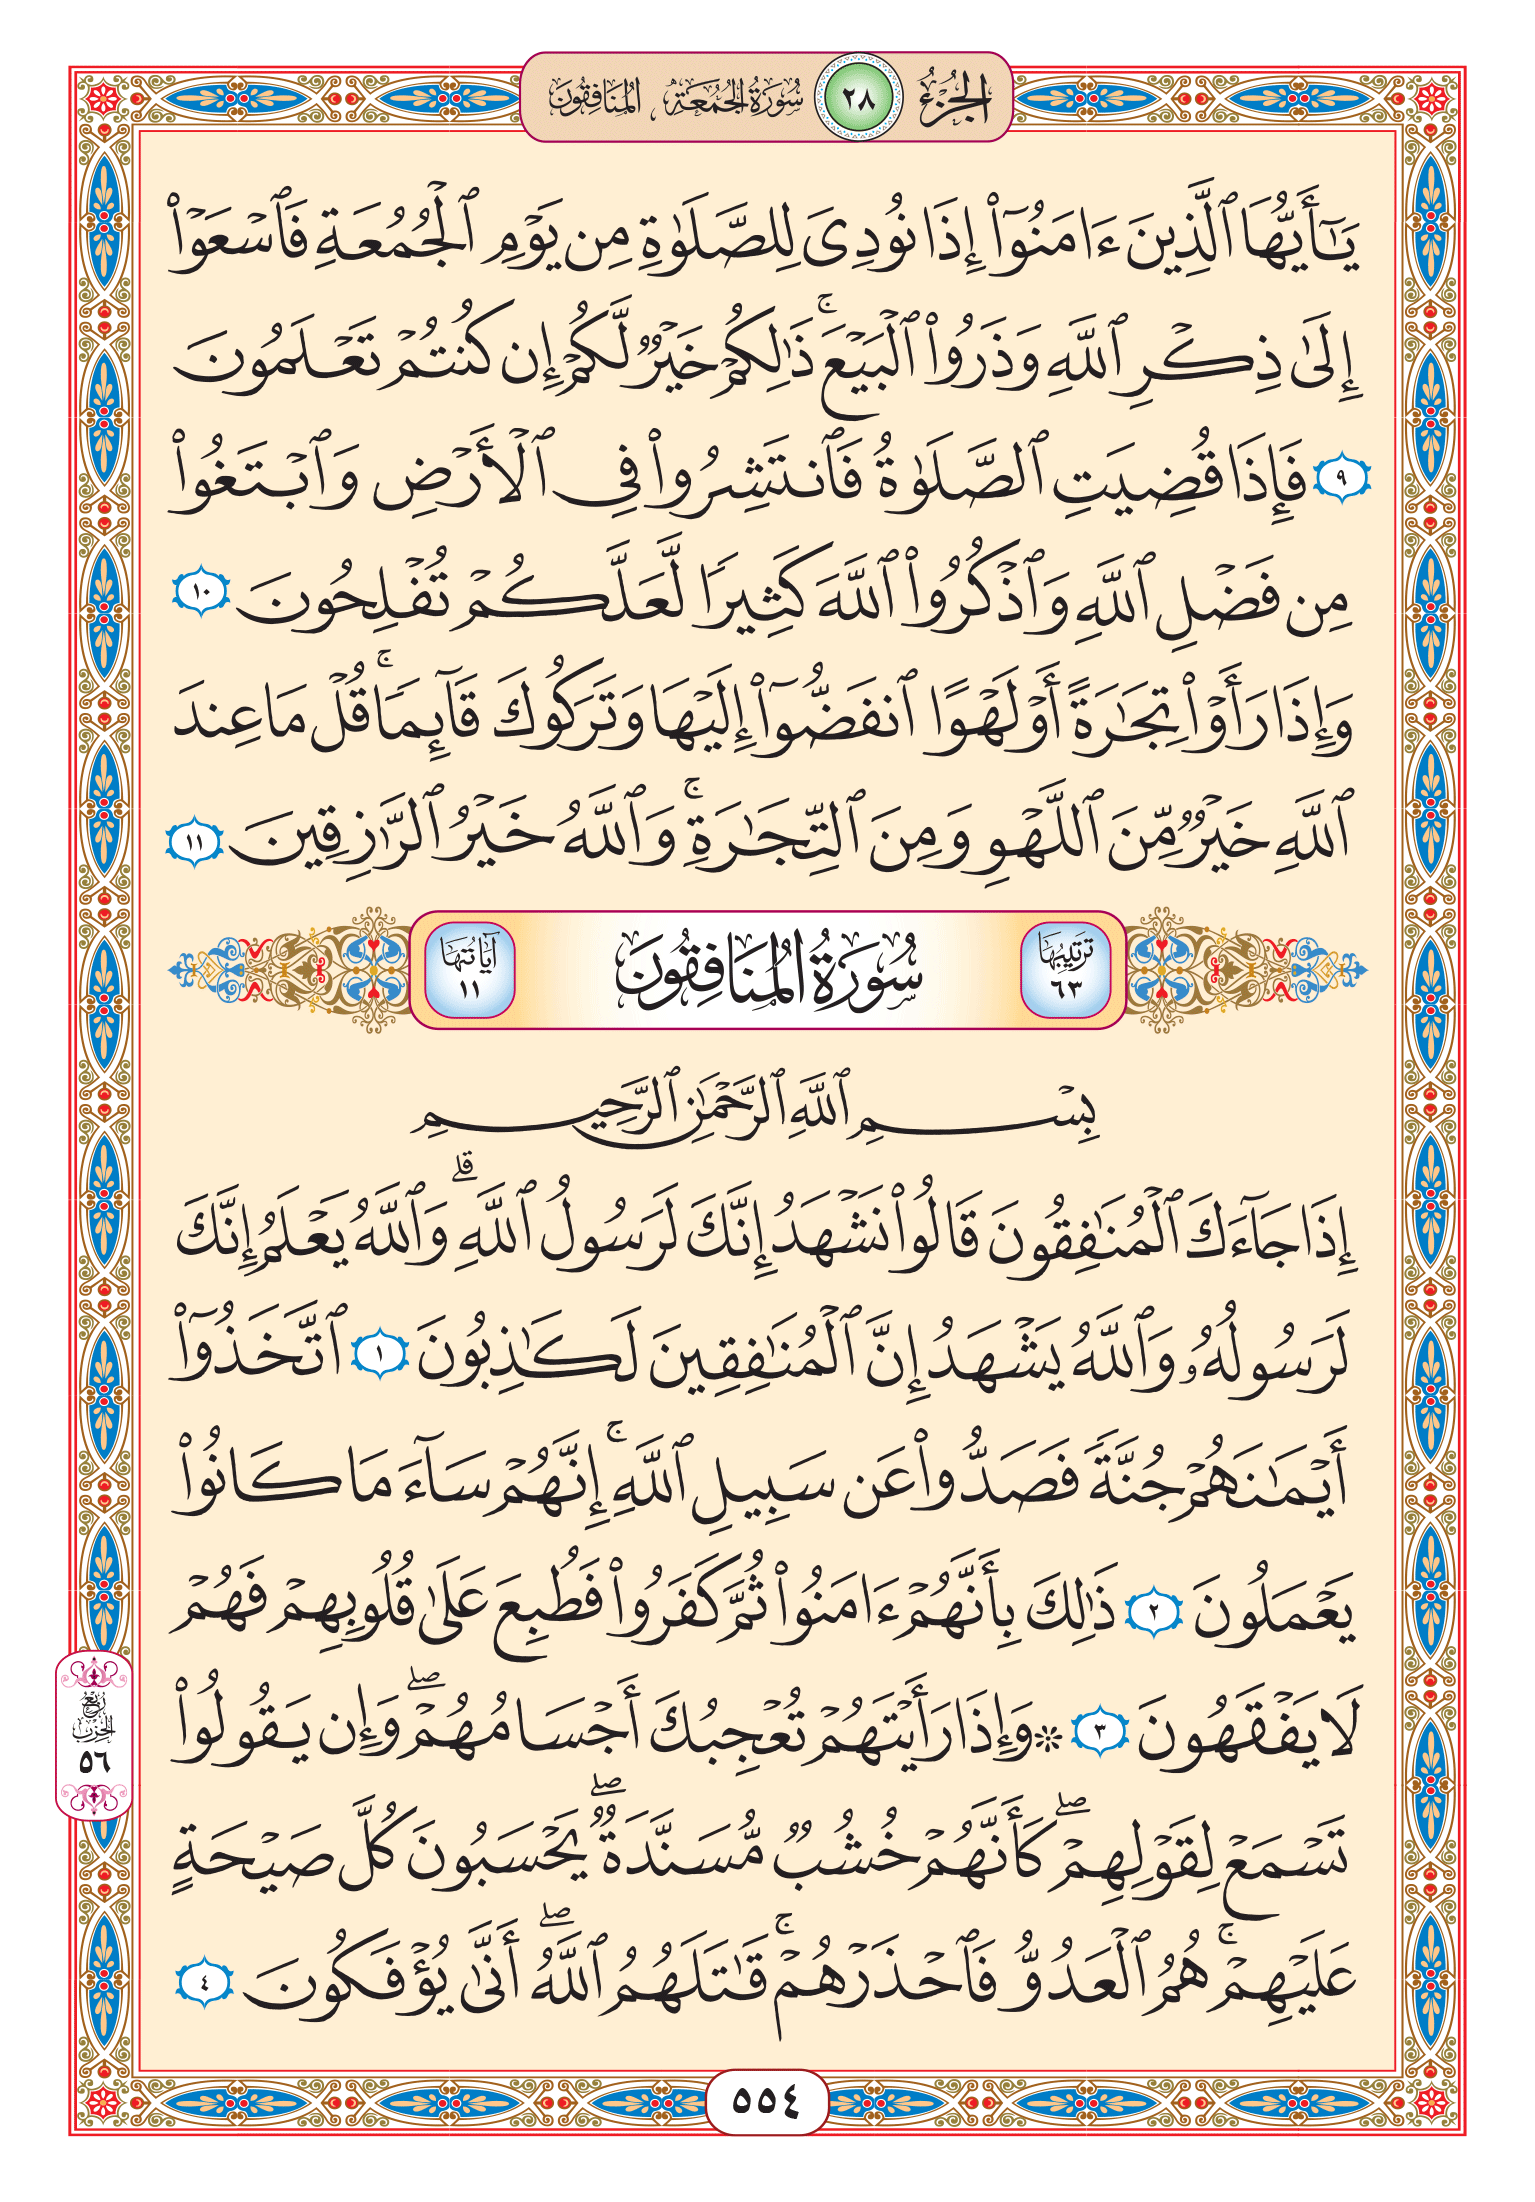 الجزء ٢٨ سورة الجمعة، المنافقون
يَٰٓأَيُّهَا ٱلَّذِينَ ءَامَنُوٓا۟ إِذَا نُودِىَ لِلصَّلَوٰةِ مِن يَوْمِ ٱلْجُمُعَةِ فَٱسْعَوْا۟
إِلَىٰ ذِكْرِ ٱللَّهِ وَذَرُوا۟ ٱلْبَيْعَ ۚ ذَٰلِكُمْ خَيْرٌ لَّكُمْ إِن كُنتُمْ تَعْلَمُونَ
٩ فَإِذَا قُضِيَتِ ٱلصَّلَوٰةُ فَٱنتَشِرُوا۟ فِى ٱلْأَرْضِ وَٱبْتَغُوا۟
مِن فَضْلِ ٱللَّهِ وَٱذْكُرُوا۟ ٱللَّهَ كَثِيرًا لَّعَلَّكُمْ تُفْلِحُونَ ١٠
وَإِذَا رَأَوْا۟ تِجَٰرَةً أَوْ لَهْوًا ٱنفَضُّوٓا۟ إِلَيْهَا وَتَرَكُوكَ قَآئِمًا ۚ قُلْ مَا عِندَ
ٱللَّهِ خَيْرٌ مِّنَ ٱللَّهْوِ وَمِنَ ٱلتِّجَٰرَةِ ۚ وَٱللَّهُ خَيْرُ ٱلرَّٰزِقِينَ ١١
ترتيبها ٦٣ سُورَةُ المُنَافِقُونَ آيَاتُهَا ١١
بِسْمِ ٱللَّهِ ٱلرَّحْمَٰنِ ٱلرَّحِيمِ
إِذَا جَآءَكَ ٱلْمُنَٰفِقُونَ قَالُوا۟ نَشْهَدُ إِنَّكَ لَرَسُولُ ٱللَّهِ ۗ وَٱللَّهُ يَعْلَمُ إِنَّكَ
لَرَسُولُهُۥ وَٱللَّهُ يَشْهَدُ إِنَّ ٱلْمُنَٰفِقِينَ لَكَٰذِبُونَ ١ ٱتَّخَذُوٓا۟
أَيْمَٰنَهُمْ جُنَّةً فَصَدُّوا۟ عَن سَبِيلِ ٱللَّهِ ۚ إِنَّهُمْ سَآءَ مَا كَانُوا۟
يَعْمَلُونَ ٢ ذَٰلِكَ بِأَنَّهُمْ ءَامَنُوا۟ ثُمَّ كَفَرُوا۟ فَطُبِعَ عَلَىٰ قُلُوبِهِمْ فَهُمْ
لَا يَفْقَهُونَ ٣ ۞ وَإِذَا رَأَيْتَهُمْ تُعْجِبُكَ أَجْسَامُهُمْ ۖ وَإِن يَقُولُوا۟
تَسْمَعْ لِقَوْلِهِمْ ۖ كَأَنَّهُمْ خُشُبٌ مُّسَنَّدَةٌ ۖ يَحْسَبُونَ كُلَّ صَيْحَةٍ
عَلَيْهِمْ ۚ هُمُ ٱلْعَدُوُّ فَٱحْذَرْهُمْ ۚ قَٰتَلَهُمُ ٱللَّهُ ۖ أَنَّىٰ يُؤْفَكُونَ ٤
ربع
الحزب
٥٦
٥٥٤